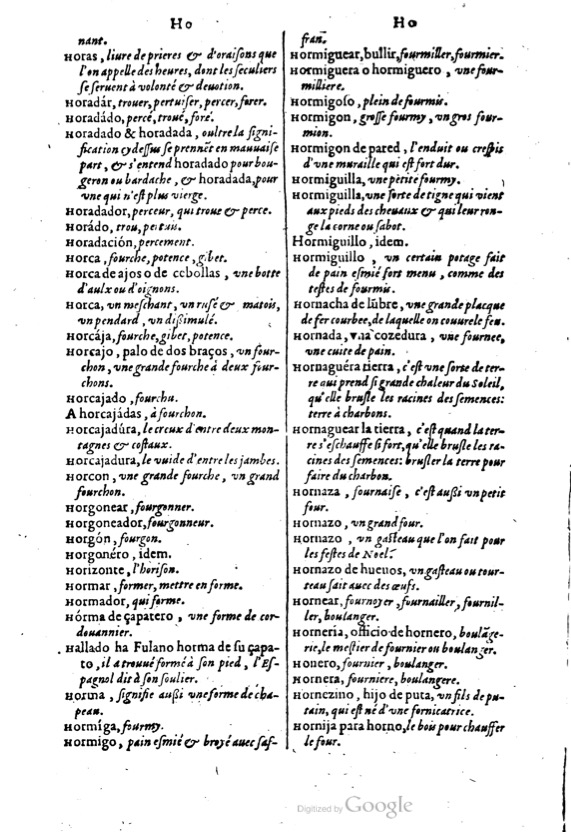 Ho
nant.
HORAS, liure de prieres & d'oraisons que
l'on appelle des heures, dont les seculiers
se seruent à volonté & deuotion.
HORADàr, trouer, pertuiser, percer, forer.
HORADàdo, percé, troué, foré.
HORADADO & horadada, oultre la signi-
fication cy dessus se prennēt en mauuaise
part, & s'entend horadado pour bou-
geron ou bardache, & horadada, pour
vne qui n'est plus vierge.
HORADADOr, perceur, qui troue & perce.
HORádo, trou, pertuis.
HORADACión, percement.
HORCA, fourche, potence, gibet.
HORCA de ajos o de cebollas, vne botte
d'aulx ou d'oignons.
HORCA, vn meschant, vn rusé & matois,
vn pendard, vn dissimulé.
HORCája, fourche, gibet, potence.
HORCAJO, palo de dos braços, vn four-
chon, vne grande fourche à deux four-
chons.
HORCAJADO, fourchu.
A horcajádas, à fourchon.
HORCAJADúra, le creux d'entre deux mon-
tagnes & costaux.
HORCAJADURA, le vuide d'entre les jambes.
HORCON, vne grande fourche, vn grand
fourchon.
HORGONEAR, fourgonner.
HORGONEADOR, fourgonneur.
HORGón, fourgon.
HORGONéro, idem.
HORIZONTE, l'horison.
HORMAR, former, mettre en forme.
HORMADOR, qui forme.
HórMA de çapatero, vne forme de cor-
douannier.
HALLADO ha Fulano horma de su çapa-
to, il a troué formé à son pied, l'Es-
pagnol dit à son soulier.
HORMA, signifie aussi vne forme de cha-
peau.
HORMíga, fourmy.
HORMIGO, pain esmié & broyé auec saf-
Ho
fran.
HORMIGUEAR, bullir, fourmiller, fourmier.
HORMIGUERA o hormiguero, vne four-
milliere.
HORMIGOSO, plein de fourmis.
HORMIGON, grosse fourmy, vn gros four-
mion.
HORMIGON de pared, l'enduit ou crespis
d'vne muraille qui est fort dur.
HORMIGUILLA, vne petite fourmy.
HORMIGUILLA, vne sorte de tigne qui vient
aux pieds des cheuaux & qui leur ron-
ge la corne ou sabot.
Hormiguillo, idem.
HORMIGUILLO, vn certain potage fait
de pain esmié fort menu, comme des
testes de fourmis.
HORNACHA de lūbre, vne grande placque
de fer courbee, de laquelle on couure le feu.
HORNADA, vna cozedura, vne fournee,
vne cuite de pain.
HORNAGUéra tierra, c'est vne sorte de ter-
re qui prend si grande chaleur du Soleil,
qu'elle brusle les racines des semences:
terre à charbons.
HORNAGUEAR la tierra, c'est quand la ter-
re s'eschauffe si fort, qu'elle brusle les ra-
cines des semences: brusler la terre pour
faire du charbon.
HORNAZA, fournaise, c'est aussi vn petit
four.
HORNAZO, vn grand four.
HORNAZO, vn gasteau que l'on fait pour
les festes de Noel.
HORNAZO de hueuos, vn gasteau ou tour-
teau fait auec des œufs.
HORNEAR, fournoyer, fournailler, fournil-
ler, boulanger.
HORNERIA, officio de hornero, boulāge-
rie, le mestier de fournier ou boulanger.
HONERO, fournier, boulanger.
HORNERA, fourniere, boulangere.
HORNEZINO, hijo de puta, vn fils de pu-
tain, qui est né d'vne fornicatrice.
HORNIJA para horno, le bois pour chauffer
le four.
Digitized by Google